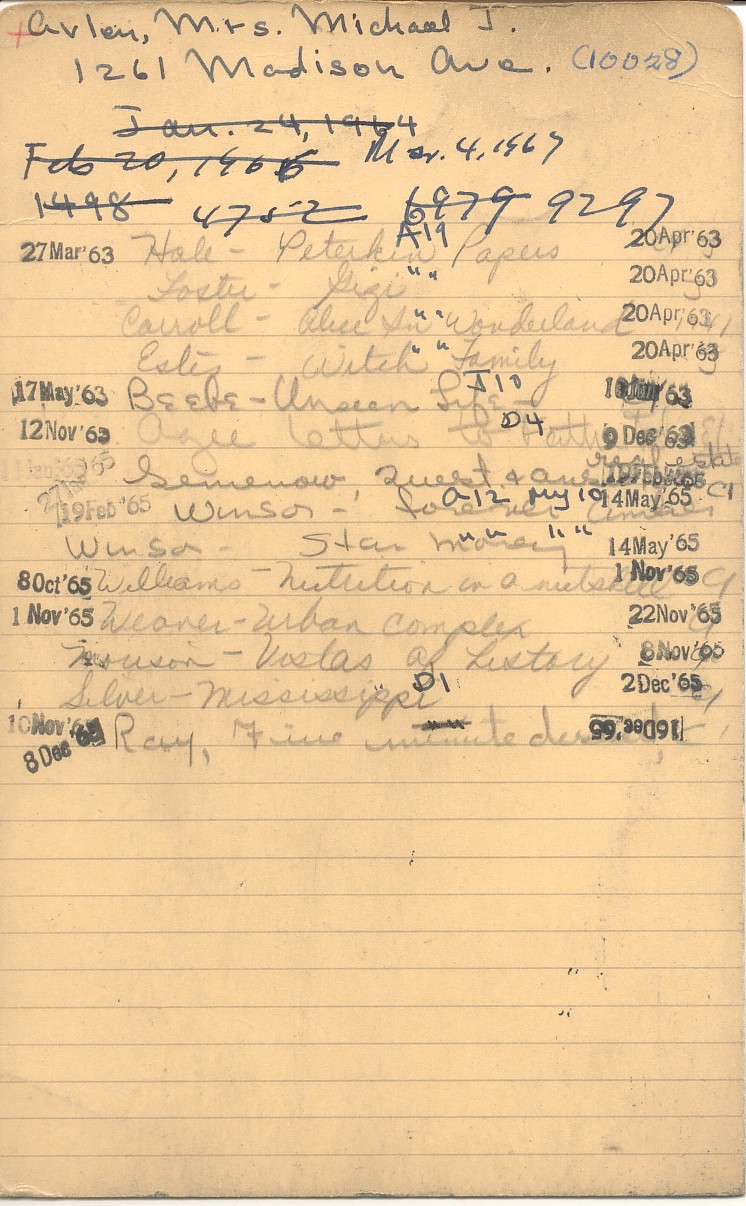 Arlen, Mrs. Michael J.
1261 Madison Ave. (10028)
Jan. 24, 1964
Feb 20, 1966 Mar. 4, 1967
1498 4752 6979 9297
A19
27 Mar '63 Hale - Peterkin Papers 20 Apr '63
Foster - Gigi " " 20 Apr '63
Carroll - Alice In Wonderland 20 Apr '63
Estes - Witch " " Family 20 Apr '63
17 May '63 BEEBE - Unseen Life J10 10 Jun '63
12 Nov '63 Agee Letters to Father D4 9 Dec '63
real estate
Semenow, Quest. & ans
19 Feb '65 Winsor - forever amber A12 My 10 14 May '65
Winsor - Star Money " " " " 14 May '65
8 Oct '65 Williams - Nutrition in a nutshell 1 Nov '65
1 Nov '65 Weaver - Urban complex 22 Nov '65
- Vistas of history 8 Nov '65
Silver - Mississippi D1 2 Dec '65
10 Nov '65 Ray, Five minute dessert 16 Dec '65
8 Dec '65